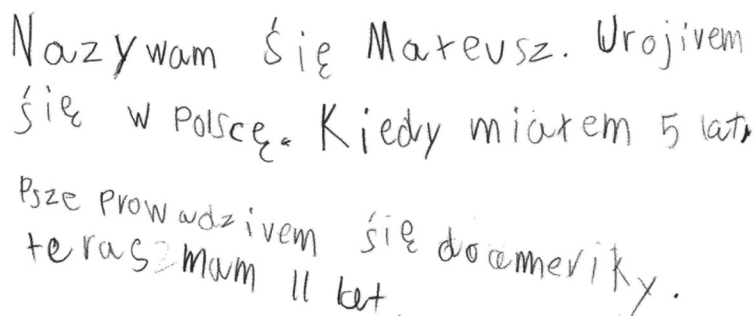 Nazywam śię Mateusz. Urojivem
śię w Polscę. Kiedy miałem 5 lat,
Psze prowadzivem śię do ameriky.
teras mam 11 let.